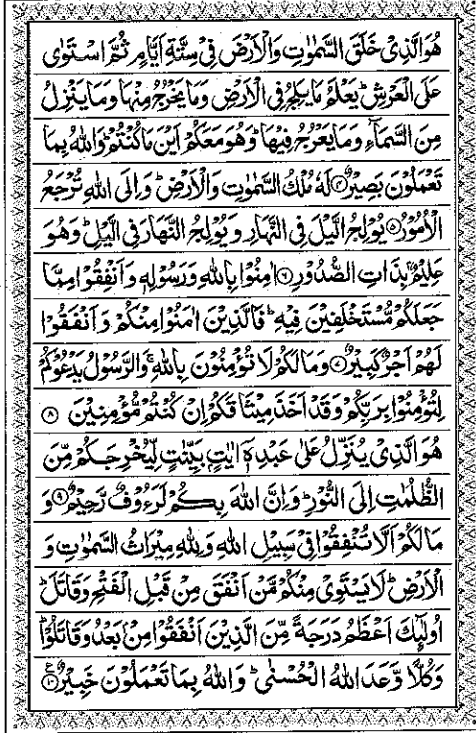 هُوَ الَّذِیْ خَلَقَ السَّمٰوٰتِ وَالْاَرْضَ فِیْ سِتَّةِ اَیَّامٍ ثُمَّ اسْتَوٰی
عَلَی الْعَرْشِ ؕ یَعْلَمُ مَا یَلِجُ فِی الْاَرْضِ وَمَا یَخْرُجُ مِنْهَا وَمَا یَنْزِلُ
مِنَ السَّمَآءِ وَمَا یَعْرُجُ فِیْهَا ؕ وَهُوَ مَعَكُمْ اَیْنَ مَا كُنْتُمْ ؕ وَاللّٰهُ بِمَا
تَعْمَلُوْنَ بَصِیْرٌ ﴿۴﴾ لَهٗ مُلْكُ السَّمٰوٰتِ وَالْاَرْضِ ؕ وَاِلَی اللّٰهِ تُرْجَعُ
الْاُمُوْرُ ﴿۵﴾ یُوْلِجُ الَّیْلَ فِی النَّهَارِ وَیُوْلِجُ النَّهَارَ فِی الَّیْلِ ؕ وَهُوَ
عَلِیْمٌۢ بِذَاتِ الصُّدُوْرِ ﴿۶﴾ اٰمِنُوْا بِاللّٰهِ وَرَسُوْلِهٖ وَاَنْفِقُوْا مِمَّا
جَعَلَكُمْ مُّسْتَخْلَفِیْنَ فِیْهِ ؕ فَالَّذِیْنَ اٰمَنُوْا مِنْكُمْ وَاَنْفَقُوْا
لَهُمْ اَجْرٌ كَبِیْرٌ ﴿۷﴾ وَمَا لَكُمْ لَا تُؤْمِنُوْنَ بِاللّٰهِ ۚ وَالرَّسُوْلُ یَدْعُوْكُمْ
لِتُؤْمِنُوْا بِرَبِّكُمْ وَقَدْ اَخَذَ مِیْثَاقَكُمْ اِنْ كُنْتُمْ مُّؤْمِنِیْنَ ﴿۸﴾
هُوَ الَّذِیْ یُنَزِّلُ عَلٰی عَبْدِهٖۤ اٰیٰتٍۭ بَیِّنٰتٍ لِّیُخْرِجَكُمْ مِّنَ
الظُّلُمٰتِ اِلَی النُّوْرِ ؕ وَاِنَّ اللّٰهَ بِكُمْ لَرَءُوْفٌ رَّحِیْمٌ ﴿۹﴾ وَ
مَا لَكُمْ اَلَّا تُنْفِقُوْا فِیْ سَبِیْلِ اللّٰهِ وَلِلّٰهِ مِیْرَاثُ السَّمٰوٰتِ وَ
الْاَرْضِ ؕ لَا یَسْتَوِیْ مِنْكُمْ مَّنْ اَنْفَقَ مِنْ قَبْلِ الْفَتْحِ وَقَاتَلَ ؕ
اُولٰٓئِكَ اَعْظَمُ دَرَجَةً مِّنَ الَّذِیْنَ اَنْفَقُوْا مِنْۢ بَعْدُ وَقَاتَلُوْا ؕ
وَكُلًّا وَّعَدَ اللّٰهُ الْحُسْنٰی ؕ وَاللّٰهُ بِمَا تَعْمَلُوْنَ خَبِیْرٌ ﴿۱۰﴾ ع